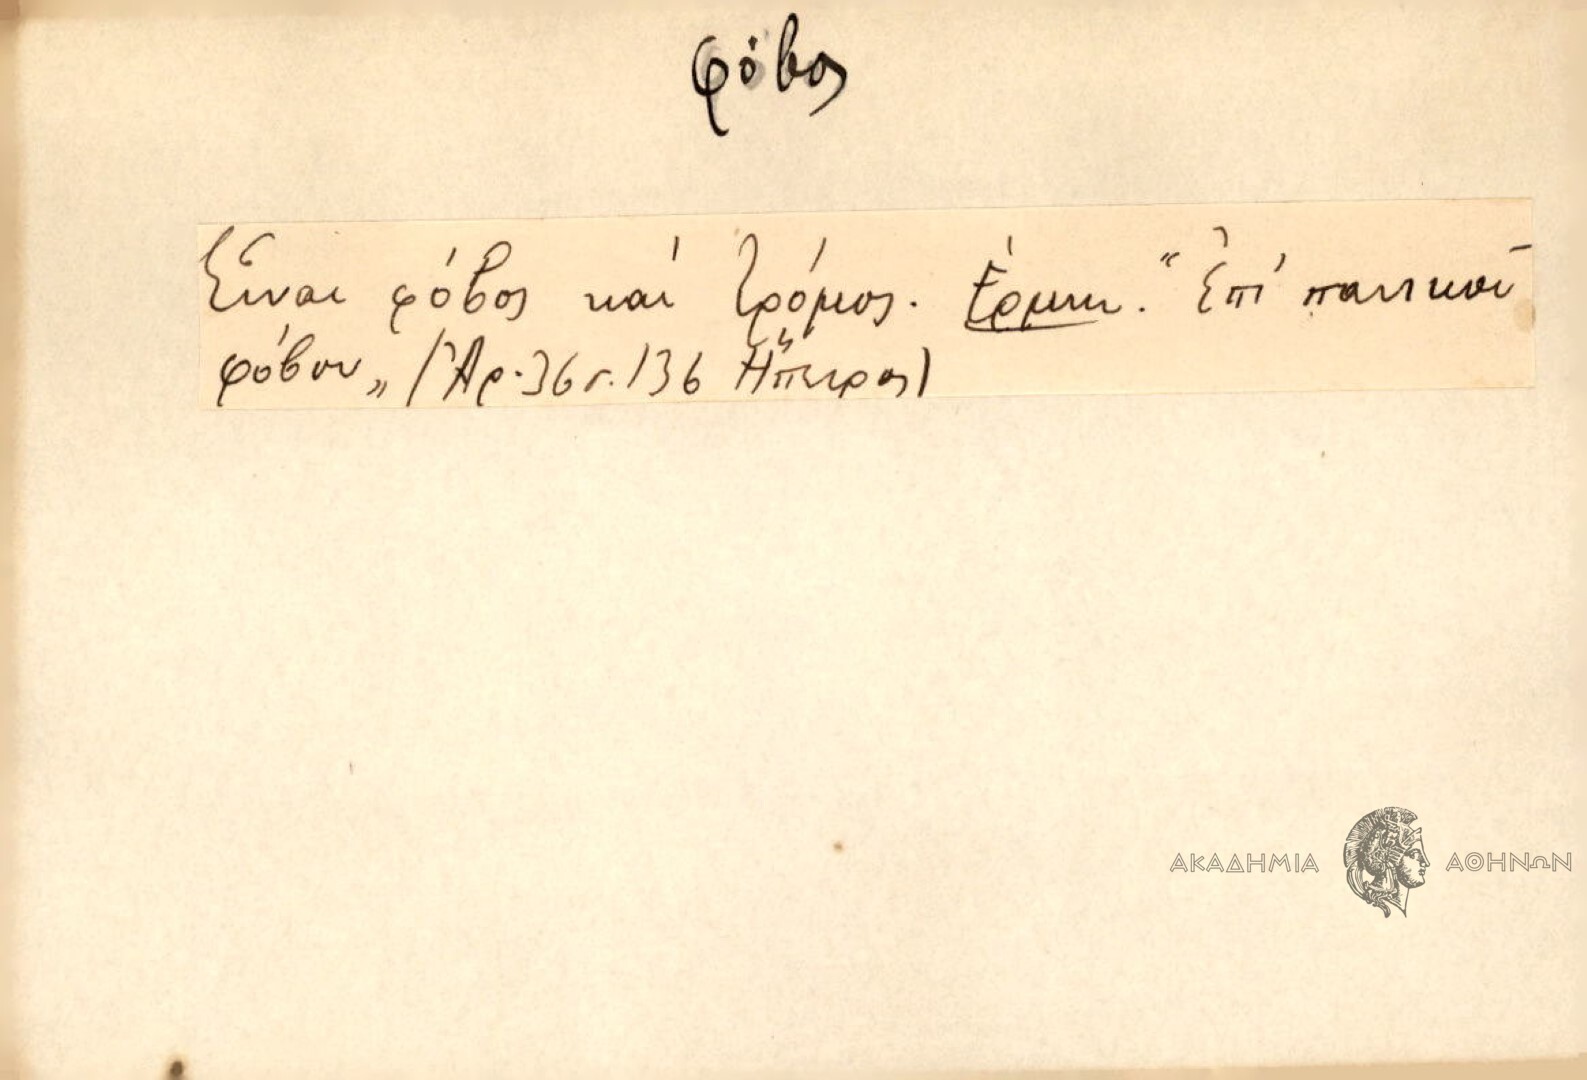 φόβος
Εἶναι φόβος καί τρόμος. Ἑρμην. "Ἐπί πανικοῦ
φόβου„ (Ἀρ. 36 σ. 136 Ἤπειρος)
ΑΚΑΔΗΜΙΑ ΑΘΗΝΩΝ